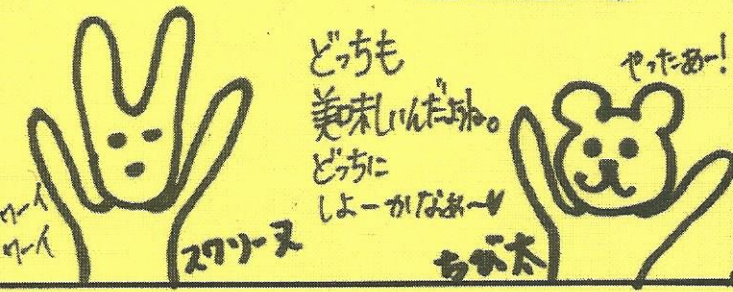 ワーイ
ワーイ
スワリーヌ
どっちも
美味しいんだよね。
どっちに
しよーかなぁ～♥
やったあー!
ちび太